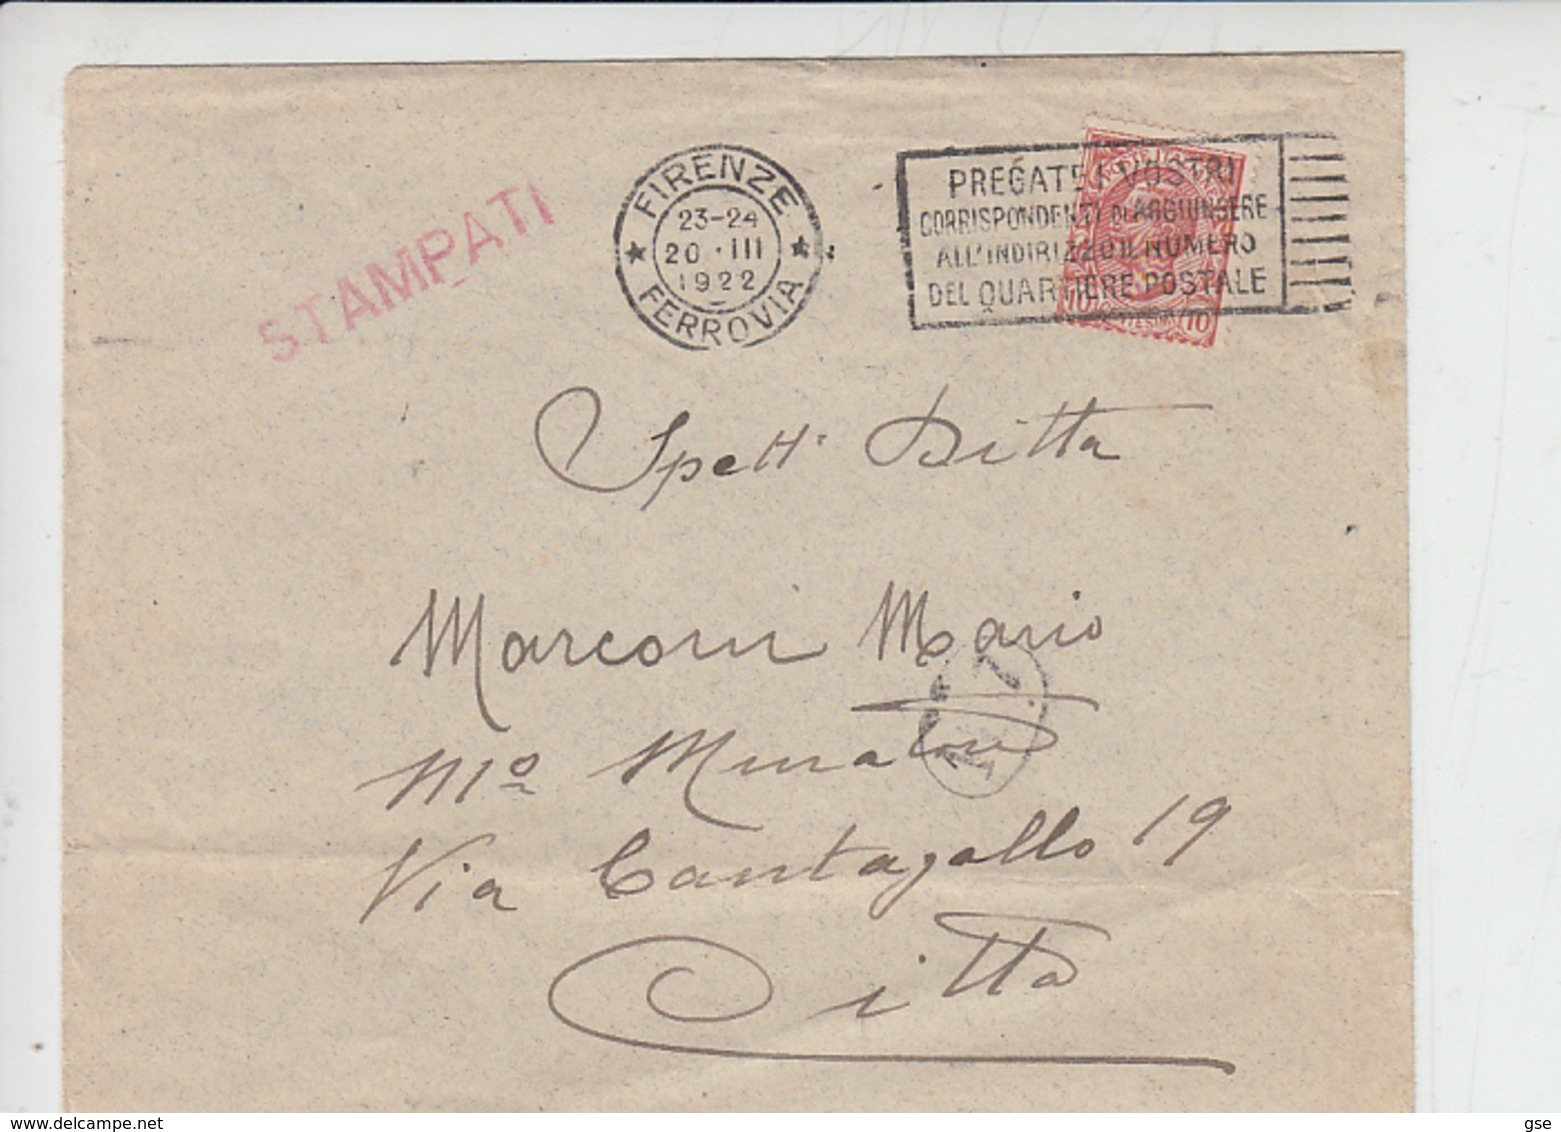 STAMPATI
FIRENZE
23-24
20·III
1922
FERROVIA
PREGATE I VOSTRI
CORRISPONDENTI DI AGGIUNGERE
ALL'INDIRIZZO IL NUMERO
DEL QUARTIERE POSTALE
10 CENTESIMI 10
Spett. Ditta
Marconi Mario
Via Cantagallo 19
Città
gse